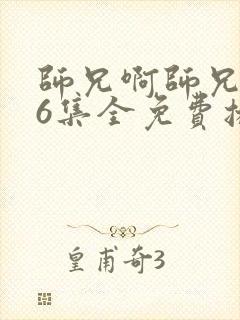 師兄啊師兄
6集全免費
皇甫奇3